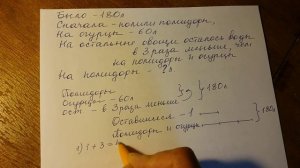 Было - 180л
Сначала - полили помидоры,
На огурцы - 60л
На остальные овощи осталось воды
в 3 раза меньше, чем
на помидоры и огурцы
На помидоры - ? л
Помидоры
Огурцы - 60л 180л
ост - в 3 раза меньше
Оставшиеся - 1
Помидоры и огурцы 180л
1) 1 + 3 =